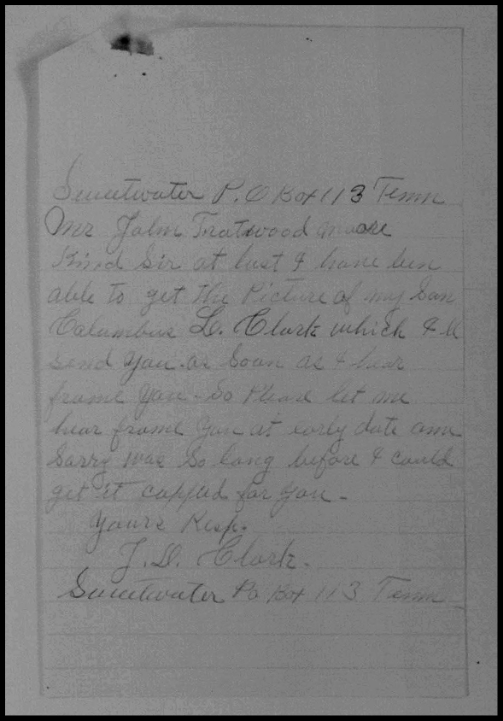 Sweetwater P.O Box 113 Tenn
Mr John Trotwood Moore
Kind Sir at last I have ben
able to get the Picture of my Son
Columbus L. Clark which I ll
send you as soon as I hear
frome you - So Please let me
hear frome you at early date am
Sorry was so long before I could
get it coppied for you -
Yours Resp.
J. D. Clark.
Sweetwater Po Box 113 Tenn